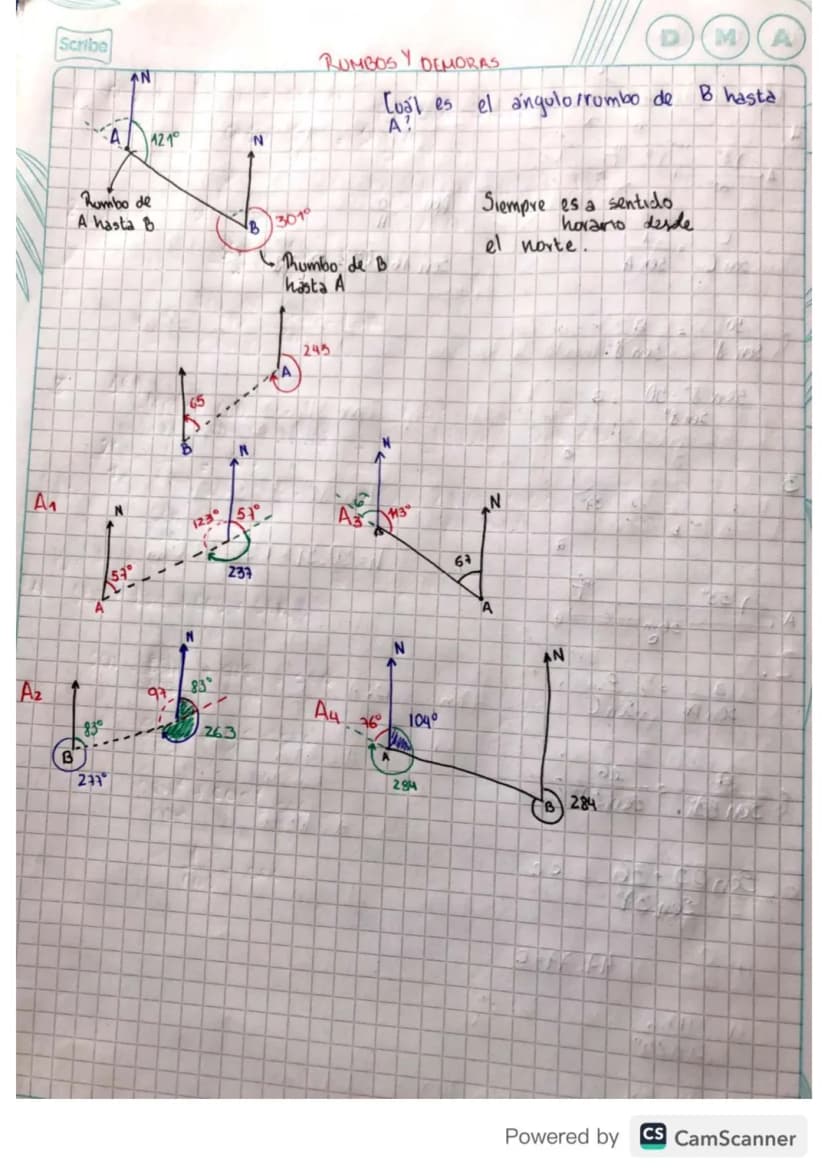 Scribe
D M A
RUMBOS Y DEMORAS
N
Cuál es el ángulo/rumbo de B hasta
A?
A 121°
N
Rumbo de
A hasta B
B 301°
Siempre es a sentido
horario desde
el norte.
Rumbo de B
hasta A
245
A
65
B
A1
N
N
123° 57°
57°
237
A
A3
N
67
113°
N
67
A
A2
N
97 83°
83°
263
B
277°
A4
N
N
76° 104°
A
284
B 284
Powered by CS CamScanner